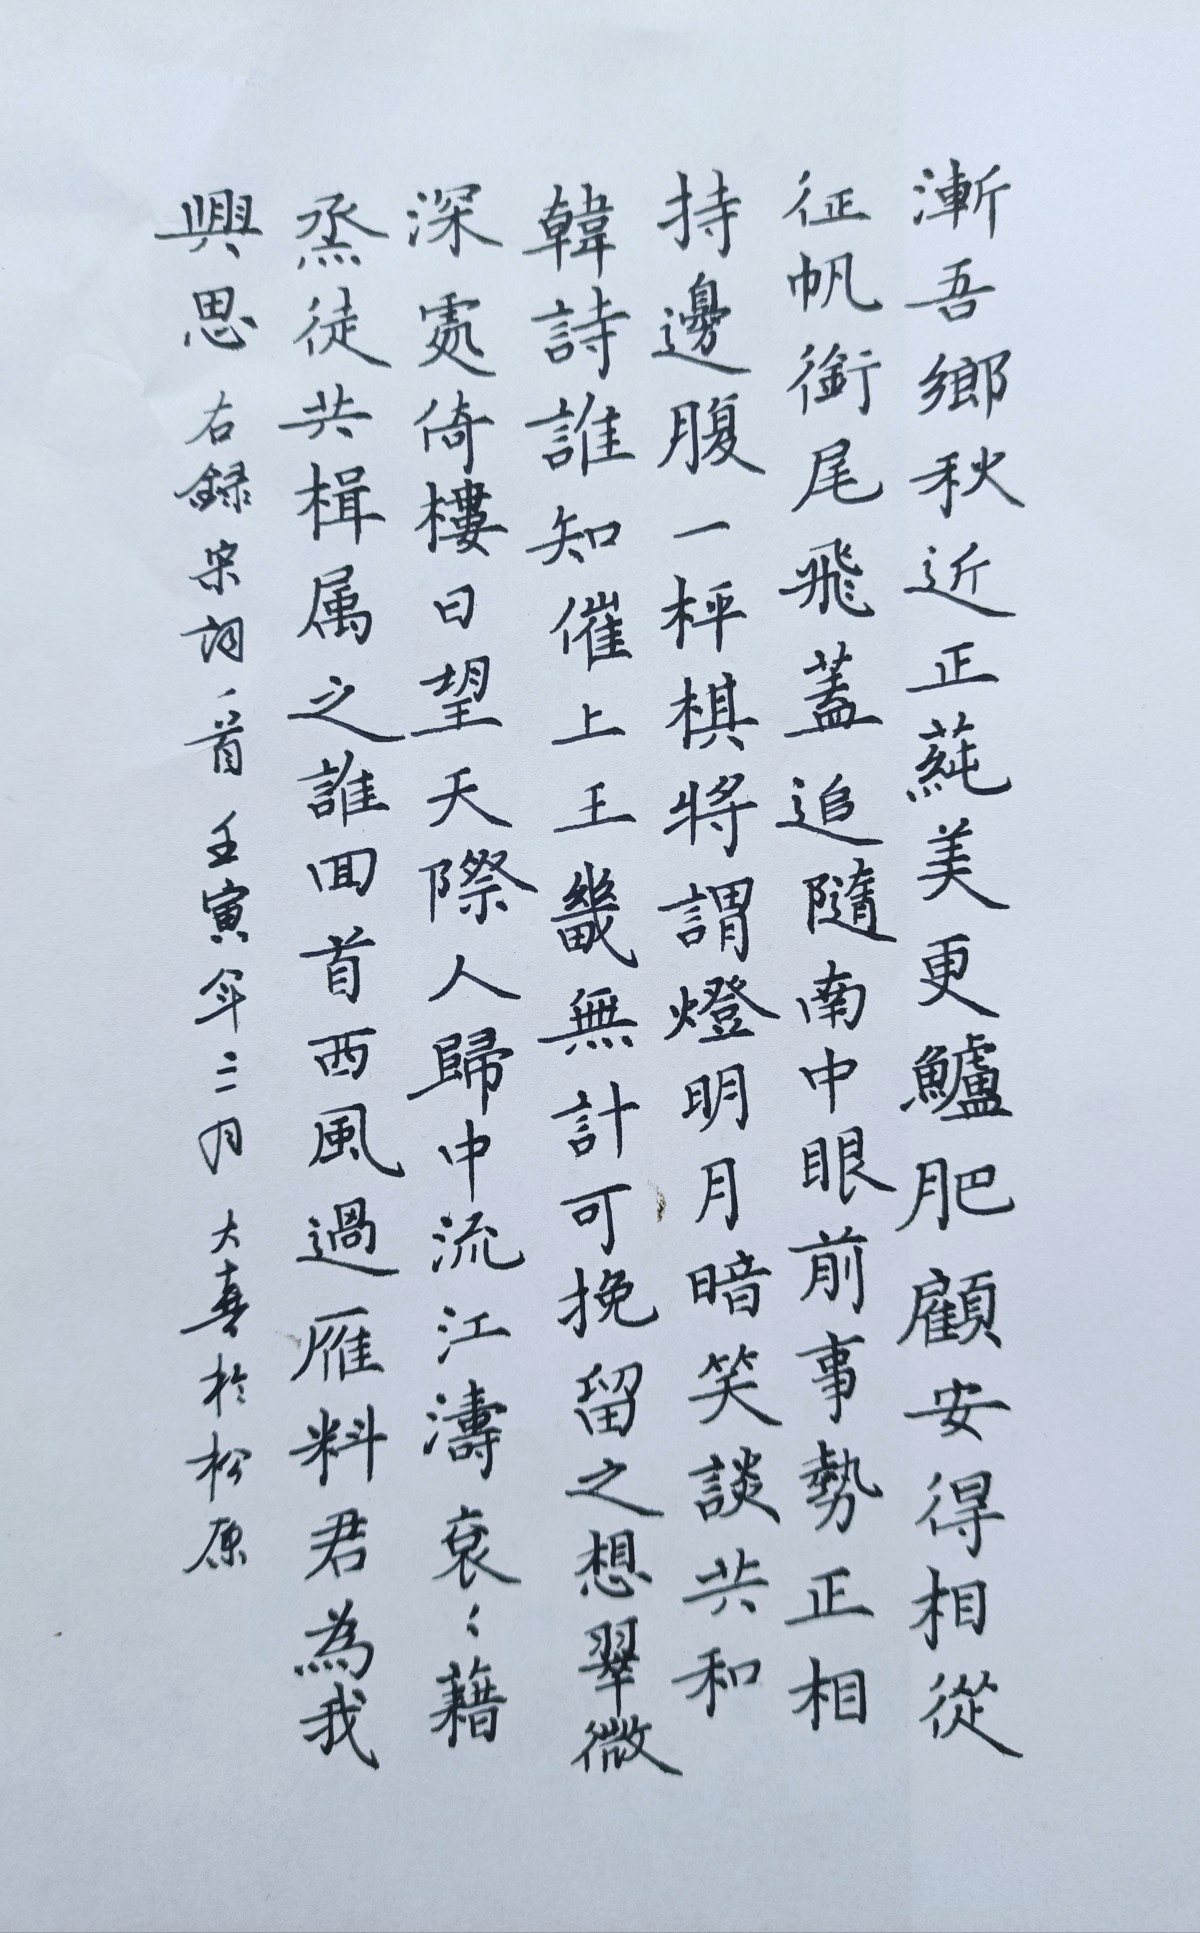 漸吾鄉秋近正蒓美更鱸肥顧安得相從
征帆銜尾飛蓋追隨南中眼前事勢正相
持邊腹一枰棋將謂燈明月暗笑談共和
韓詩誰知催上王畿無計可挽留之想翠微
深處倚樓日望天際人歸中流江濤袞〻藉
烝徒共楫属之誰回首西風過雁料君為我
興思右録宋詞一首壬寅年二月大喜於松原